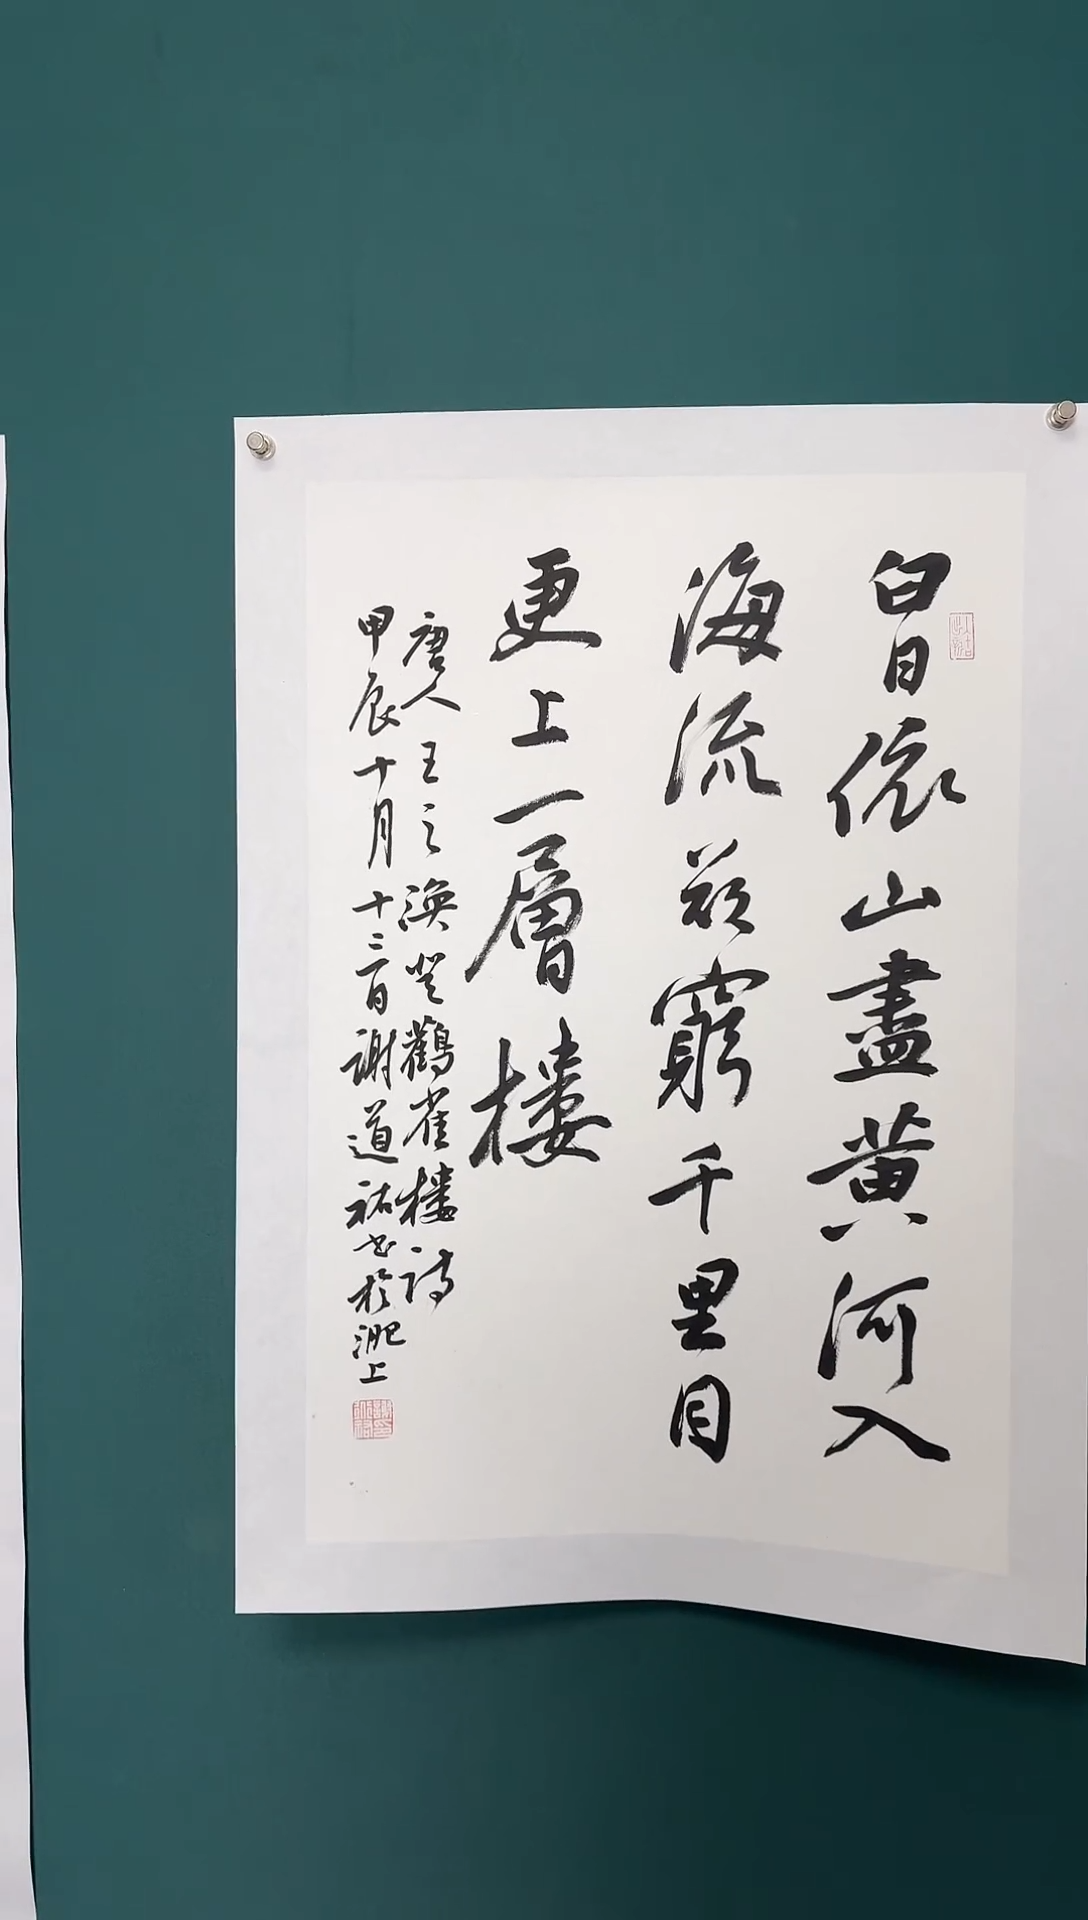 白日依山盡黄河入
海流欲窮千里目
更上一層樓
唐人王之渙登鸛雀樓詩
甲辰十月十三日謝道祐书於淝上